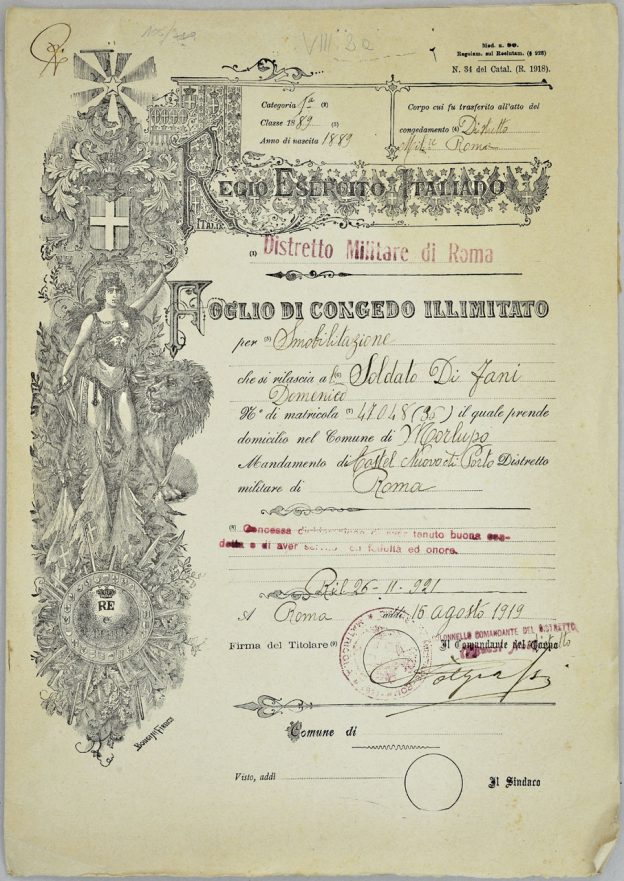 VIII. 3a
Mod. n. 90.
Regolam. sul Reclutam. (§ 925)
N. 34 del Catal. (R. 1918).
Categoria 1ª (2)
Classe 1889 (3)
Anno di nascita 1889
Corpo cui fu trasferito all'atto del
congedamento (4) Distretto
Milre Roma
REGIO ESERCITO ITALIANO
ITALIA
(1) Distretto Militare di Roma
FOGLIO DI CONGEDO ILLIMITATO
per (5) Smobilitazione
che si rilascia al (6) Soldato Di Fani
Domenico
N° di matricola (7) 47048 (35) il quale prende
domicilio nel Comune di Morlupo
Mandamento di Castel Nuovo di Porto Distretto
militare di Roma
(8) Concessa dichiarazione di aver tenuto buona con-
dotta e di aver servito con fedeltà ed onore.
Ril 26-11-921
A Roma addì 16 agosto 1919
Firma del Titolare (9)
COLONNELLO COMANDANTE DEL DISTRETTO
Il Comandante del Corpo
Distretto
RE
Comune di
Visto, addì
Il Sindaco